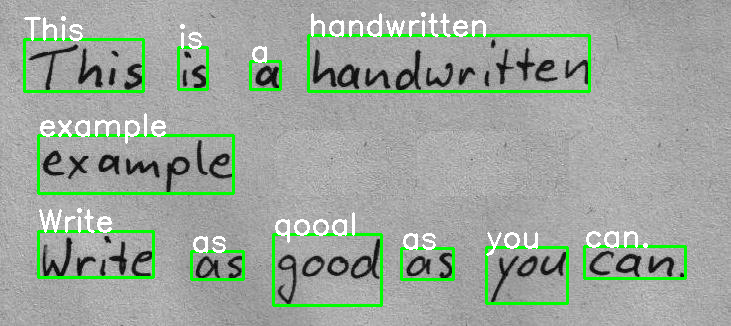 This is a handwritten
This is a handwritten
example
example
Write as qooal as you can.
Write as good as you can.